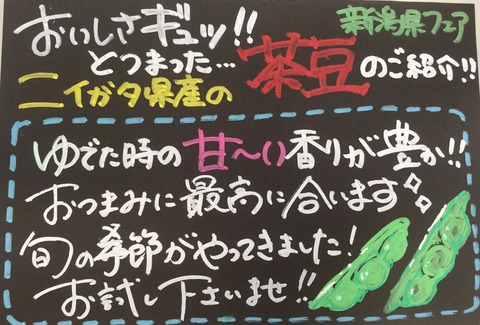 おいしさギュッ!!
新潟県フェア
とつまった…
ニイガタ県産の
茶豆のご紹介!!
ゆでた時の甘〜い香りが豊か!!
おつまみに最高に合います
旬の季節がやってきました!
お試し下さいませ!!